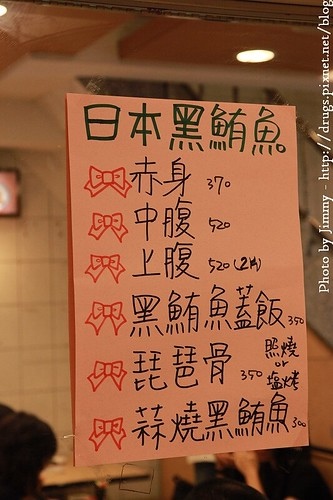 日本黑鮪魚
赤身 370
中腹 520
上腹 520(2片)
黑鮪魚蓋飯 350
琵琶骨 350 照燒 or 塩烤
蒜燒黑鮪魚 300
Photo by Jimmy - http://drugs.pixnet.net/blog